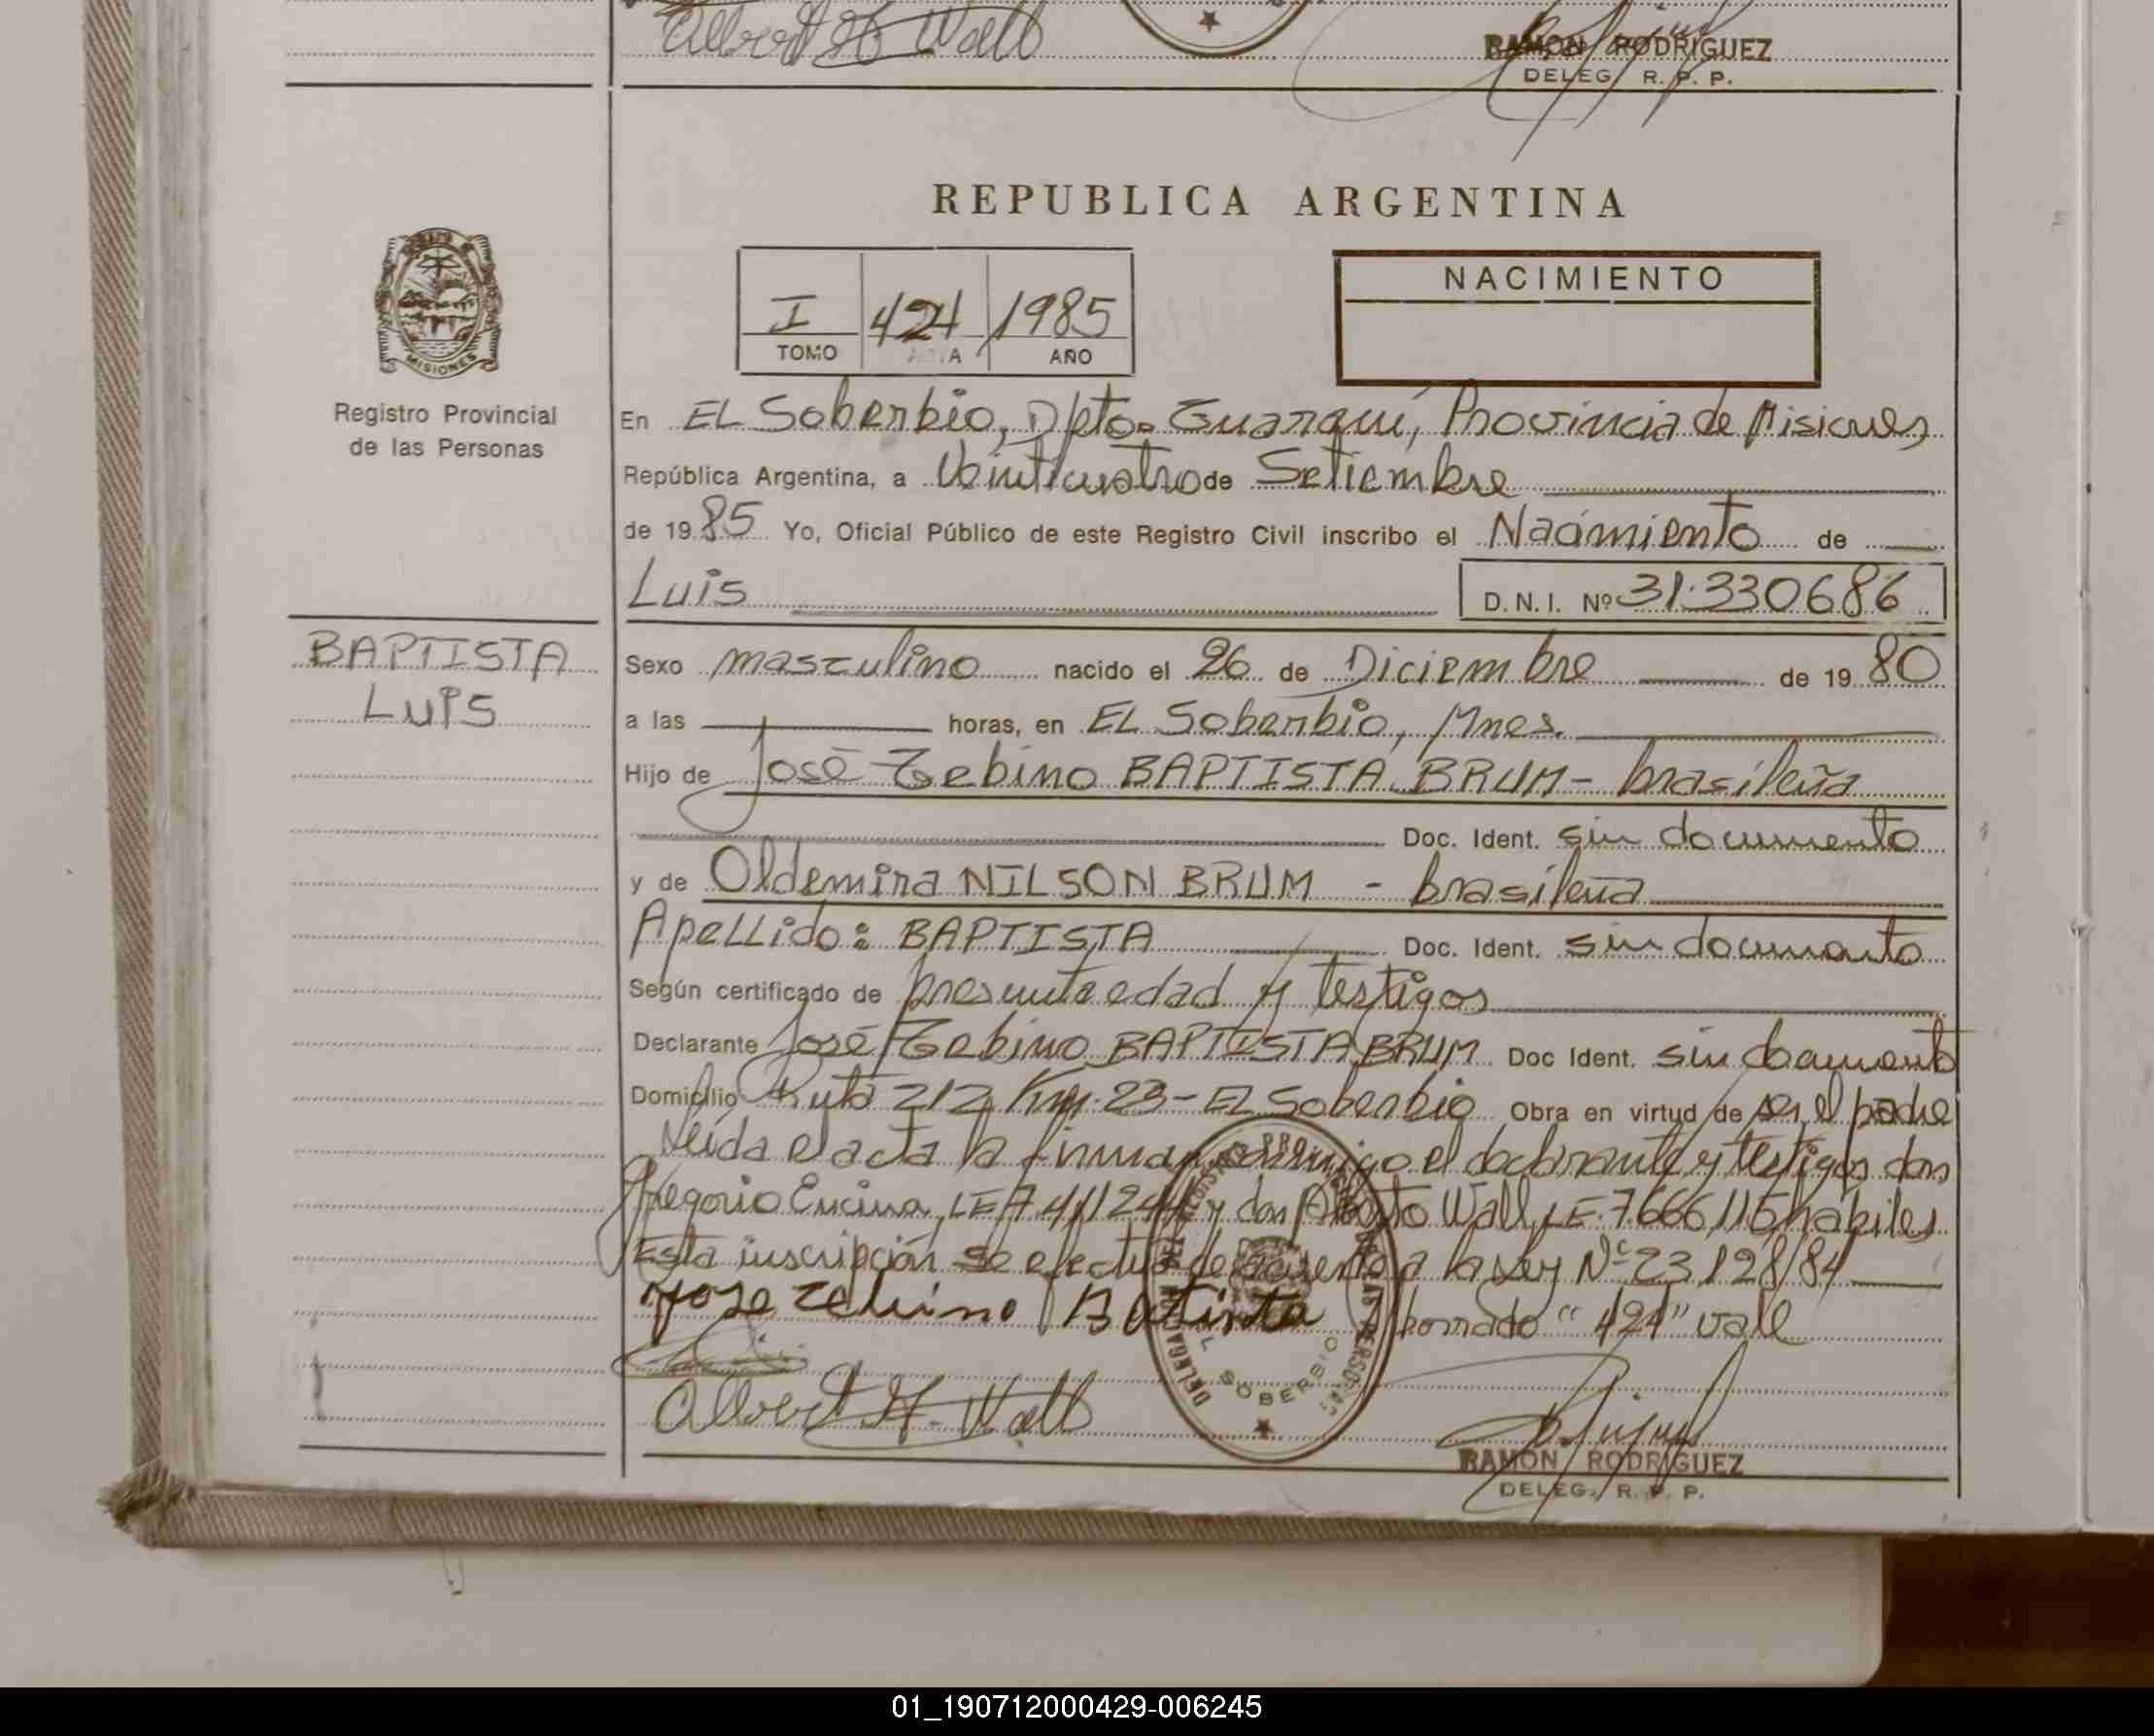 Albert H Wall
RAMON RODRIGUEZ
DELEG. R. P. P.
REPUBLICA ARGENTINA
MISIONES
Registro Provincial
de las Personas
I 424 1985
TOMO ACTA AÑO
NACIMIENTO
En EL Soberbio, Dpto. Guaraní, Provincia de Misiones
República Argentina, a Veinticuatro de Setiembre
de 1985 Yo, Oficial Público de este Registro Civil inscribo el Nacimiento de
Luis D.N.I. Nº 31.330686
BAPTISTA
LUIS
Sexo masculino nacido el 26 de Diciembre de 1980
a las horas, en EL Soberbio, Mnes.
Hijo de José Zebino BAPTISTA BRUM - brasileña
Doc. Ident. sin documento
y de Oldemira NILSON BRUM - brasileña
Apellido: BAPTISTA Doc. Ident. sin documento
Según certificado de presunta edad y testigos
Declarante José Zebino BAPTISTA BRUM Doc Ident. sin documento
Domicilio Ruta 212 Km. 23 - EL Soberbio Obra en virtud de ser el padre
Leída el acta la firman conmigo el declarante y testigos don
Gregorio Encina, LE y don Alberto Wall, LE. 7.666.115 hábiles
Esta inscripción se efectúa de acuerdo a la Ley Nº 23128/84
Jose Zebino Batista Borrado "424" vale
Albert H. Wall
EL SOBERBIO
RAMON RODRIGUEZ
DELEG. R. P. P.
01_190712000429-006245